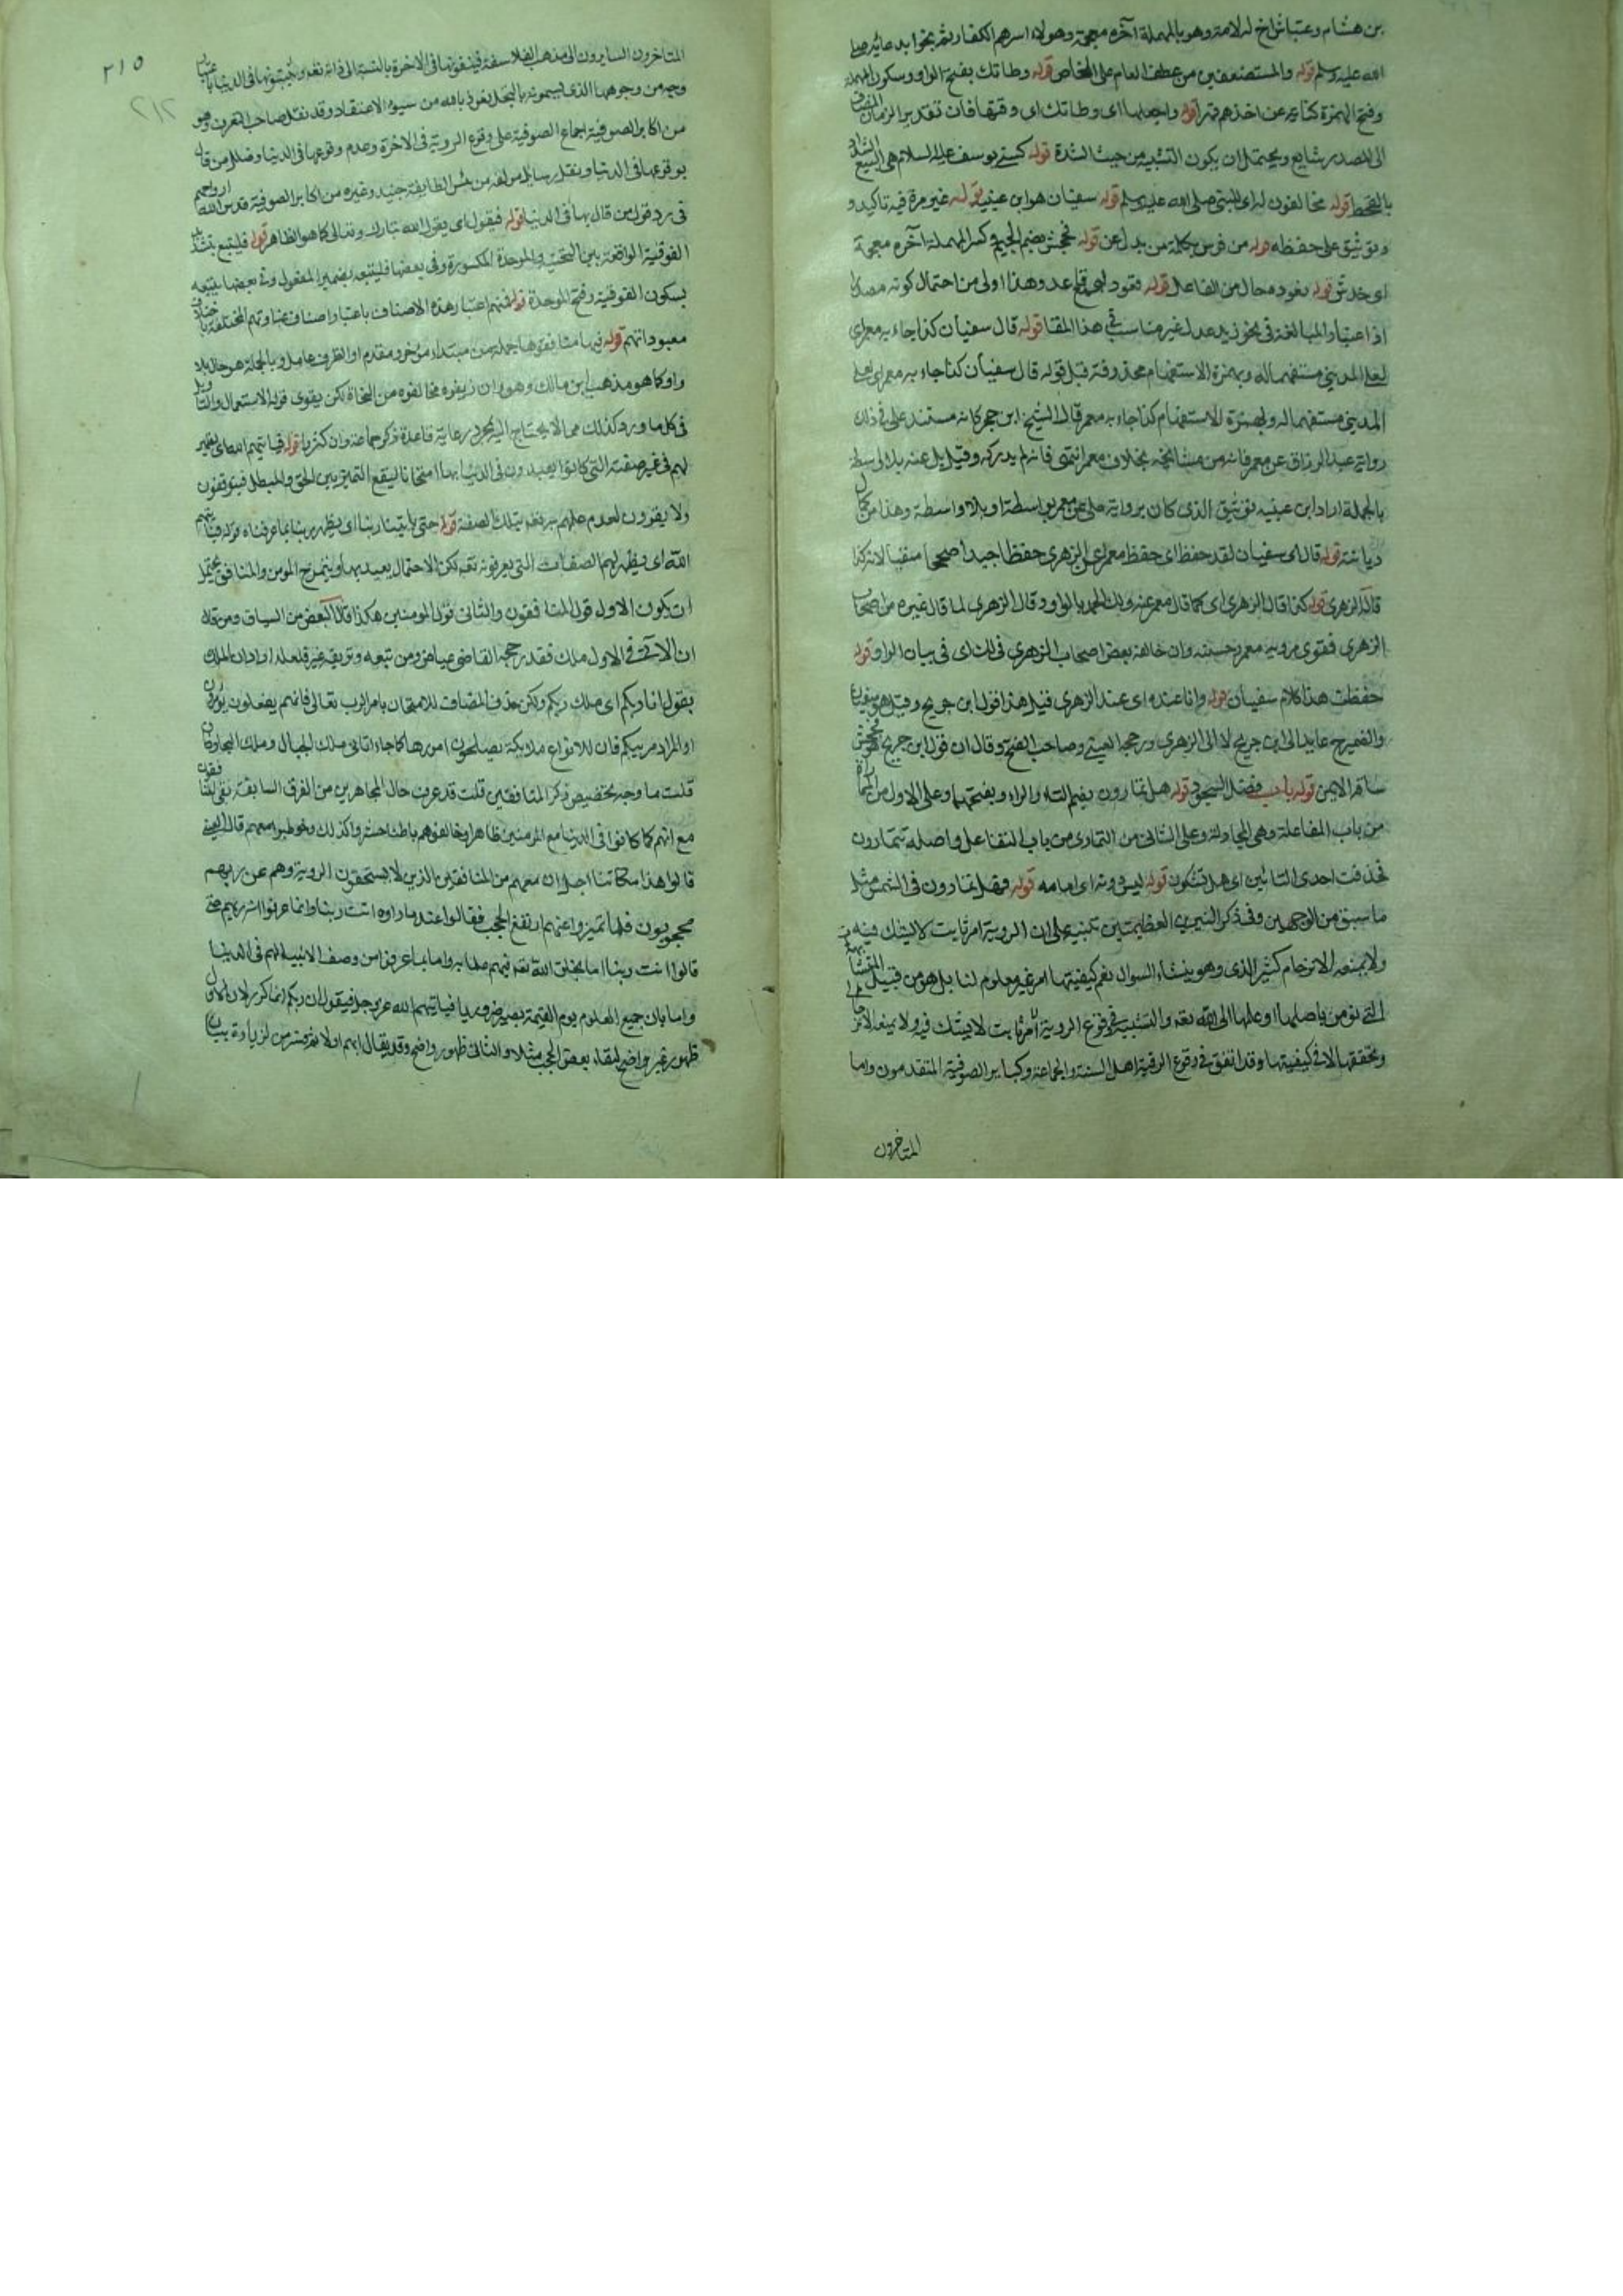 بن هشام وعياش اخ له لامه وهو بالمهملة آخره معجمة وهولاء اسرهم الكفار ثم نجوا بدعائه صلى
الله عليه وسلم قوله والمستضعفين من عطف العام على الخاص قوله وطاتك بفتح الواو وسكون المهملة
وفتح الهمزة كناية عن اخذهم قهرا قوله واجعلها اى وطاتك اى وقتها فان تقدير الزمان المضاف
الى المصدر شايع ويحتمل ان يكون التشبيه من حيث الشدة قوله كسني يوسف عليه السلام هى السبع الشداد
بالقحط قوله مخالفون له اى للنبى صلى الله عليه وسلم قوله سفيان هو ابن عيينه قوله غير مرة فيه تاكيد و
توثيق على حفظه قوله من فرس بكلمة من بدل عن قوله فجحش بضم الجيم وكسر المهملة آخره معجمة
اى خدش قوله
اذ اعتبار المبالغة فى نحو زيد عدل غير مناسب فى هذا المقام قوله قال سفيان كذا جاء به معمر اى
لعلى المدينى مستفهما له وبهمزة الاستفهام محذوفة قبل قوله قال سفيان كذا جاء به معمر اى لعلى
المدينى مستفهما له وبهمزة الاستفهام كذا جاء به معمر قال الشيخ ابن حجر كانه مستند على فى ذلك
رواية عبد الرزاق عن معمر فانه من مشايخه بخلاف معمر انتهى فانه لم يدركه وقيل بل عنه بلا واسطة
بالجملة اراد ابن عيينه توثيق الذى كان برواية على عن معمر بواسطة او بلا واسطة وهذا من كمال
ديانته قوله قال اى سفيان لقد حفظ اى حفظ معمر اى عن الزهرى حفظا جيدا صحيحا متقنا لانه كذا
قال الزهرى قوله كذا قال الزهرى اى كما قال معمر عنه ولك الحمد بالواو وقال الزهرى لما قال غيره من اصحاب
الزهرى فقوى مرويه معمر وحسنه وان خالفه بعض اصحاب الزهرى فى لك اى فى بيان الواو قوله
حفظت هذا كلام سفيان قوله وانا عنده اى عند الزهرى قيل هذا قول ابن جريج وقيل هو سفيان
والضمير عايد الى ابن جريج لا الى الزهرى ورجحه العينى وصاحب الفتح وقال ان قول ابن جريج هو فجحش
ساقه الايمن قوله باب فضل السجود قوله هل تمارون بضم التاء والراء وبفتحهما وعلى الاول من المماراة
من باب المفاعلة وهى المجادلة وعلى الثانى من التمارى من باب التفاعل واصله تتمارون
فحذفت احدى التائين اى هل تشكون قوله ليس دونه اى امامه قوله فهل تمارون فى الشمس مثل
ما سبق من الوجهين وفى ذكر النيرين العظيمتين تنبيه على ان الروية امر ثابت لا يشك فيه
ولا يمنعه الازدحام كثير الذى وهو ينشاء السوال نعم كيفيتها امر غير معلوم لنا بل هو من قبيل المتشابهات
التى نومن باصلها او علمها الى الله تعه والتشبيه فى وقوع الروية امر ثابت لا يشك فيه ولا يمنعه الازدحام
وتحققها لا فى كيفيتها وقد اتفق فى وقوع الروية اهل السنة والجماعة وكباير الصوفية المتقدمون واما
المتاخرون
٢١٥
٢١٢
المتاخرون السايرون الى مذهب الفلاسفة فينفونها فى الاخرة بالنسبة الى ذاته تعه ويثبتونها فى الدنيا
وجه من وجوهها الذى يسمونه بالتجلى نعوذ بالله من سوء الاعتقاد وقد نقل صاحب التعرف وهو
من اكابر الصوفية اجماع الصوفية على وقوع الروية فى الاخرة وعدم وقوعها فى الدنيا وضلل من قال
بوقوعها فى الدنيا ونقل رسايل مولفه من الطايفة جنيد وغيره من اكابر الصوفية قدس الله ارواحهم
فى رد قول من قال بها فى الدنيا قوله فيقول اى يقول الله تبارك وتعالى كما هو الظاهر قوله فليتبع بتشديد
الفوقية الواقعة بين التحتية والموحدة المكسورة وفى بعضها فليتبعه بضمير المفعول وفى بعضها يتبعه
بسكون الفوقية وفتح الموحدة قوله فمنهم اعتبار هذه الاصناف باعتبار اصناف عباداتهم المختلفة باختلاف
معبوداتهم قوله فيها منافقوها جملة من مبتداء موخر ومقدم او الظرف عامل وبالجملة هو حال بلا
واو كما هو مذهب ابن مالك وهو وان زيفوه مخالفوه من النحاة لكن يقوى قوله الاستعمال والتاويل
فى كل ما ورد كذلك مما لا يحتاج اليه لمجرد رعاية قاعدة ذكره جماعة وان كثروا قوله فياتيهم الله اى يظهر
لهم فى غير صفته التى كانوا يعبدون فى الدنيا بها امتحانا ليقع التميز بين الحق والمبطل فيتوقفون
ولا يقرون لعدم علمهم به تعه بتلك الصفة قوله حتى ياتينا ربنا اى يظهر ربنا بما عرفناه قوله فياتيهم
الله اى يظهر لهم الصفات التى يعرفونه تعه لكن الاحتمال بعيد بها ويتميز المومن والمنافق يحتمل
ان يكون الاول قول المنافقون والثانى قول المومنين هكذا قال البعض من السياق ومن قال
ان الاتى فى الاول ملك فقد رجحه القاضى عياض ومن تبعه وتزييفه غير قلعله اراد ان الملك
يقول انا ربكم اى ملك ربكم ولكن بحذف المضاف للامتحان بامر الرب تعالى فانهم يفعلون ما يومرون
او المراد مربيكم فان للانواع ملايكة يصلحون امورها كما جاء اتانى ملك الجبال وملك البحار فان
قلت ما وجه تخصيص ذكر المنافقين قلت قد عرف حال المجاهرين من الفرق السابقة بقى المنافقون
مع انهم كما كانوا فى الدنيا مع المومنين ظاهرا وخالفوهم باطنا حشروا كذلك وخوطبوا معهم قال العينى
قالوا هذا مكاننا اجل ان معهم من المنافقين الذين لا يستحقون الروية وهم عن ربهم
محجوبون فلما تميزوا عنهم رفع الحجب فقالوا عند ما راوه انت ربنا وانما عرفوا انه ربهم حتى
قالوا انت ربنا اما بخلق الله تعه فيهم علما به واما بما عرفوا من وصف الانبياء لهم فى الدنيا
واما بان جميع العلوم يوم القيمة يصير ضروريا فياتيهم الله عز وجل فيقول ان ربكم انما كرر لان الاول
ظهور غير واضح لبقاء بعض الحجب مثلا والثانى ظهور واضح وقد يقال ابهم اولا ثم فسره من لزيادة بيان